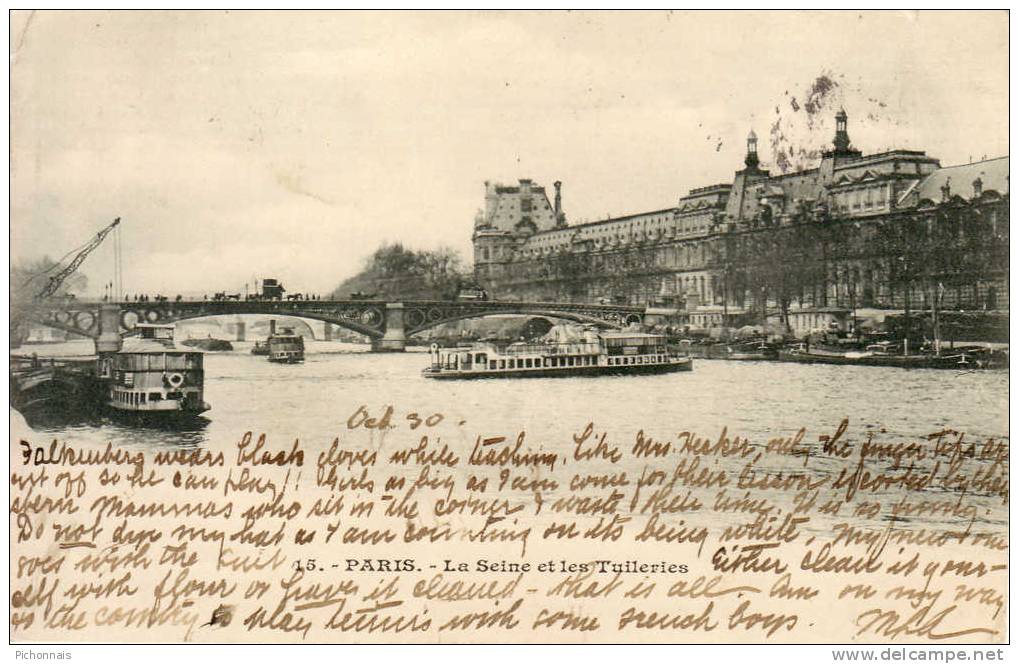 Oct. 30.
Falkenberg wears black gloves while teaching, like Mrs. Hecker, only the finger tips are
cut off so he can play!! Girls as big as I am come for their lesson escorted by their
Mammas who sit in the corner & waste their time. It is so funny.
Do not dye my hat as I am counting on its being white, my new one
goes with the suit
15. - PARIS. - La Seine et les Tuileries
Either clean it your-
self with flour or have it cleaned - that is all. Am on my way
to the country to play tennis with some french boys.
Pichonnais
www.delcampe.net